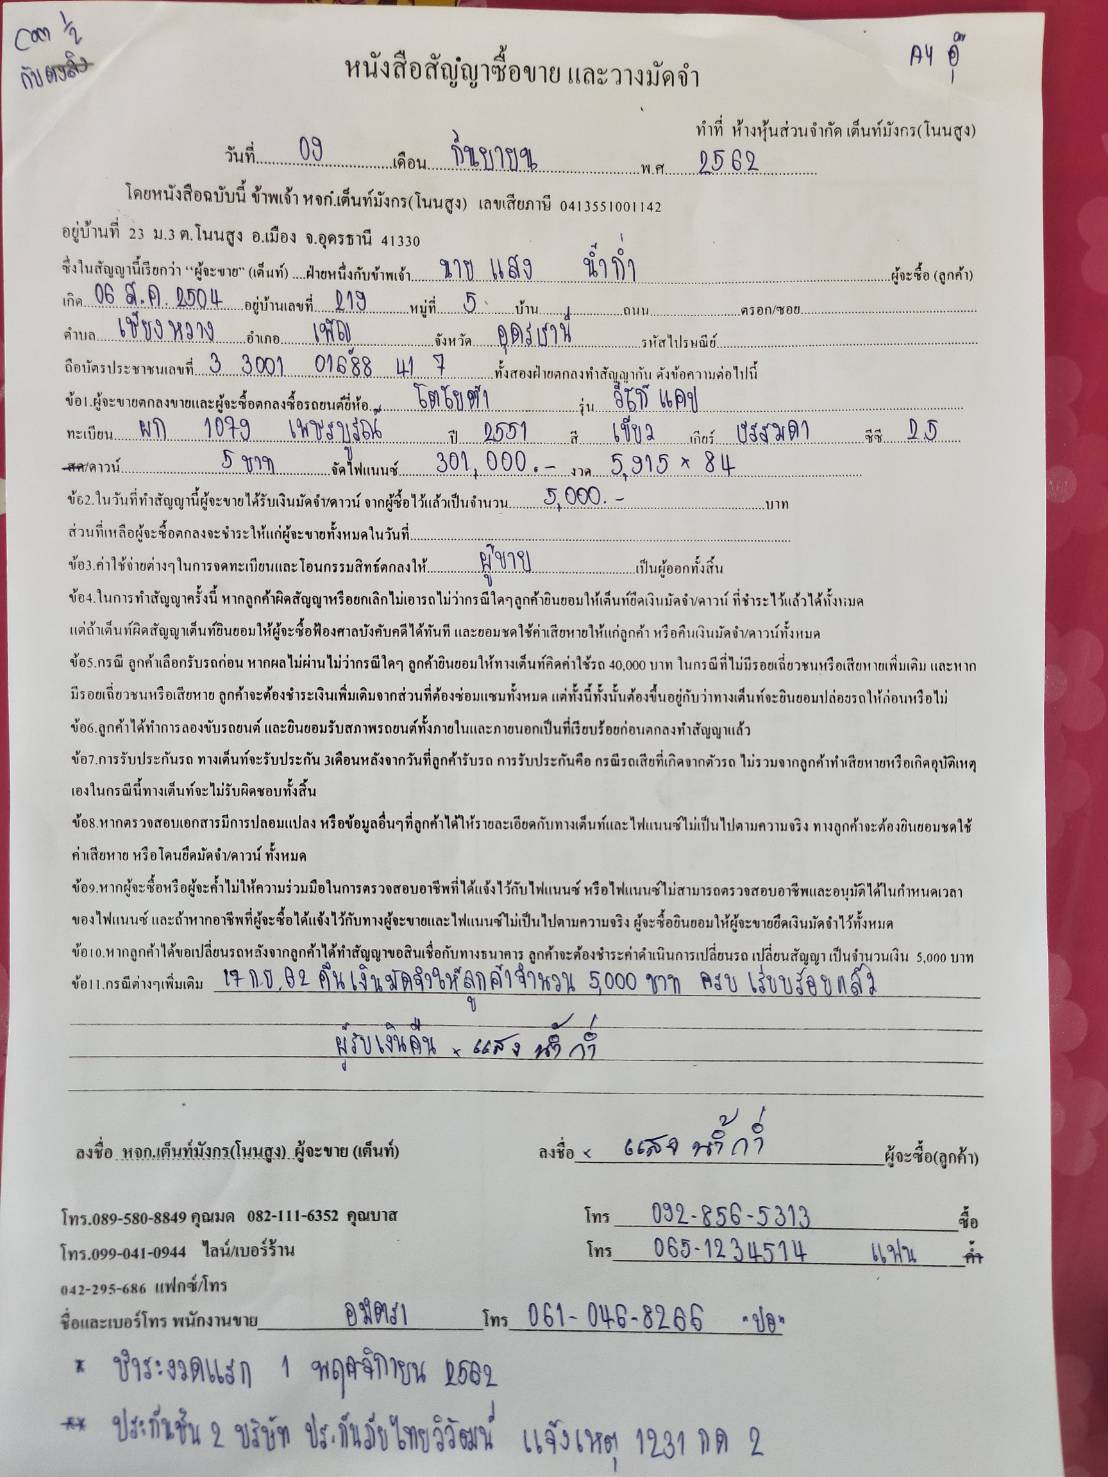 com 1/2
A4 อุ๊
กับ
หนังสือสัญญาซื้อขาย และวางมัดจำ
ทำที่ ห้างหุ้นส่วนจำกัด เต็นท์มังกร(โนนสูง)
วันที่ 09 เดือน กันยายน พ.ศ 2562
โดยหนังสือฉบับนี้ ข้าพเจ้า หจก.เต็นท์มังกร(โนนสูง) เลขเสียภาษี 0413551001142
อยู่บ้านที่ 23 ม.3 ต.โนนสูง อ.เมือง จ.อุดรธานี 41330
ซึ่งในสัญญานี้เรียกว่า "ผู้จะขาย" (เต็นท์) ....ฝ่ายหนึ่งกับข้าพเจ้า นาย แสง น้ำก่ำ ผู้จะซื้อ (ลูกค้า)
เกิด 06 ส.ค. 2504 อยู่บ้านเลขที่ 219 หมู่ที่ 5 บ้าน ถนน ตรอก/ซอย
ตำบล เชียงหวาง อำเภอ เพ็ญ จังหวัด อุดรธานี รหัสไปรษณีย์
ถือบัตรประชาชนเลขที่ 3 3001 01688 41 7 ทั้งสองฝ่ายตกลงทำสัญญากัน ดังข้อความต่อไปนี้
ข้อ1.ผู้จะขายตกลงขายและผู้จะซื้อตกลงซื้อรถยนต์ยี่ห้อ โตโยต้า รุ่น วีโก้ แคป
ทะเบียน ผก 1079 เพชรบูรณ์ ปี 2551 สี เขียว เกียร์ ธรรมดา ซีซี 2.5
สด/ดาวน์ 5 บาท จัดไฟแนนซ์ 301,000.- งวด 5,915 × 84
ข้อ2.ในวันที่ทำสัญญานี้ผู้จะขายได้รับเงินมัดจำ/ดาวน์ จากผู้ซื้อไว้แล้วเป็นจำนวน 5,000.- บาท
ส่วนที่เหลือผู้จะซื้อตกลงจะชำระให้แก่ผู้จะขายทั้งหมดในวันที่
ข้อ3.ค่าใช้จ่ายต่างๆในการจดทะเบียนและโอนกรรมสิทธ์ตกลงให้ ผู้ขาย เป็นผู้ออกทั้งสิ้น
ข้อ4.ในการทำสัญญาครั้งนี้ หากลูกค้าผิดสัญญาหรือยกเลิกไม่เอารถไม่ว่ากรณีใดๆลูกค้ายินยอมให้เต็นท์ยึดเงินมัดจำ/ดาวน์ ที่ชำระไว้แล้วได้ทั้งหมด
แต่ถ้าเต็นท์ผิดสัญญาเต็นท์ยินยอมให้ผู้จะซื้อฟ้องศาลบังคับคดีได้ทันที และยอมชดใช้ค่าเสียหายให้แก่ลูกค้า หรือคืนเงินมัดจำ/ดาวน์ทั้งหมด
ข้อ5.กรณี ลูกค้าเลือกรับรถก่อน หากผลไม่ผ่านไม่ว่ากรณีใดๆ ลูกค้ายินยอมให้ทางเต็นท์คิดค่าใช้รถ 40,000 บาท ในกรณีที่ไม่มีรอยเฉี่ยวชนหรือเสียหายเพิ่มเติม และหาก
มีรอยเฉี่ยวชนหรือเสียหาย ลูกค้าจะต้องชำระเงินเพิ่มเติมจากส่วนที่ต้องซ่อมแซมทั้งหมด แต่ทั้งนี้ทั้งนั้นต้องขึ้นอยู่กับว่าทางเต็นท์จะยินยอมปล่อยรถให้ก่อนหรือไม่
ข้อ6.ลูกค้าได้ทำการลองขับรถยนต์ และยินยอมรับสภาพรถยนต์ทั้งภายในและภายนอกเป็นที่เรียบร้อยก่อนตกลงทำสัญญาแล้ว
ข้อ7.การรับประกันรถ ทางเต็นท์จะรับประกัน 3เดือนหลังจากวันที่ลูกค้ารับรถ การรับประกันคือ กรณีรถเสียที่เกิดจากตัวรถ ไม่รวมจากลูกค้าทำเสียหายหรือเกิดอุบัติเหตุ
เองในกรณีนี้ทางเต็นท์จะไม่รับผิดชอบทั้งสิ้น
ข้อ8.หากตรวจสอบเอกสารมีการปลอมแปลง หรือข้อมูลอื่นๆที่ลูกค้าได้ให้รายละเอียดกับทางเต็นท์และไฟแนนซ์ไม่เป็นไปตามความจริง ทางลูกค้าจะต้องยินยอมชดใช้
ค่าเสียหาย หรือโดนยึดมัดจำ/ดาวน์ ทั้งหมด
ข้อ9.หากผู้จะซื้อหรือผู้จะค้ำไม่ให้ความร่วมมือในการตรวจสอบอาชีพที่ได้แจ้งไว้กับไฟแนนซ์ หรือไฟแนนซ์ไม่สามารถตรวจสอบอาชีพและอนุมัติได้ในกำหนดเวลา
ของไฟแนนซ์ และถ้าหากอาชีพที่ผู้จะซื้อได้แจ้งไว้กับทางผู้จะขายและไฟแนนซ์ไม่เป็นไปตามความจริง ผู้จะซื้อยินยอมให้ผู้จะขายยึดเงินมัดจำไว้ทั้งหมด
ข้อ10.หากลูกค้าได้ขอเปลี่ยนรถหลังจากลูกค้าได้ทำสัญญาขอสินเชื่อกับทางธนาคาร ลูกค้าจะต้องชำระค่าดำเนินการเปลี่ยนรถ เปลี่ยนสัญญา เป็นจำนวนเงิน 5,000 บาท
ข้อ11.กรณีต่างๆเพิ่มเติม 17 ก.ย. 62 คืนเงินมัดจำให้ลูกค้าจำนวน 5,000 บาท ครบ เรียบร้อยแล้ว
ผู้รับเงินคืน × แสง น้ำก่ำ
ลงชื่อ หจก.เต็นท์มังกร(โนนสูง) ผู้จะขาย (เต็นท์) ลงชื่อ × แสง น้ำก่ำ ผู้จะซื้อ(ลูกค้า)
โทร.089-580-8849 คุณมด 082-111-6352 คุณบาส โทร 092-856-5313 ซื้อ
โทร.099-041-0944 ไลน์/เบอร์ร้าน โทร 065-1234514 แฟน ค้ำ
042-295-686 แฟกซ์/โทร
ชื่อและเบอร์โทร พนักงานขาย อมิตรา โทร 061-046-8266 "ปอ"
* ชำระงวดแรก 1 พฤศจิกายน 2562
** ประกันชั้น 2 บริษัท ประกันภัยไทยวิวัฒน์ แจ้งเหตุ 1231 กด 2